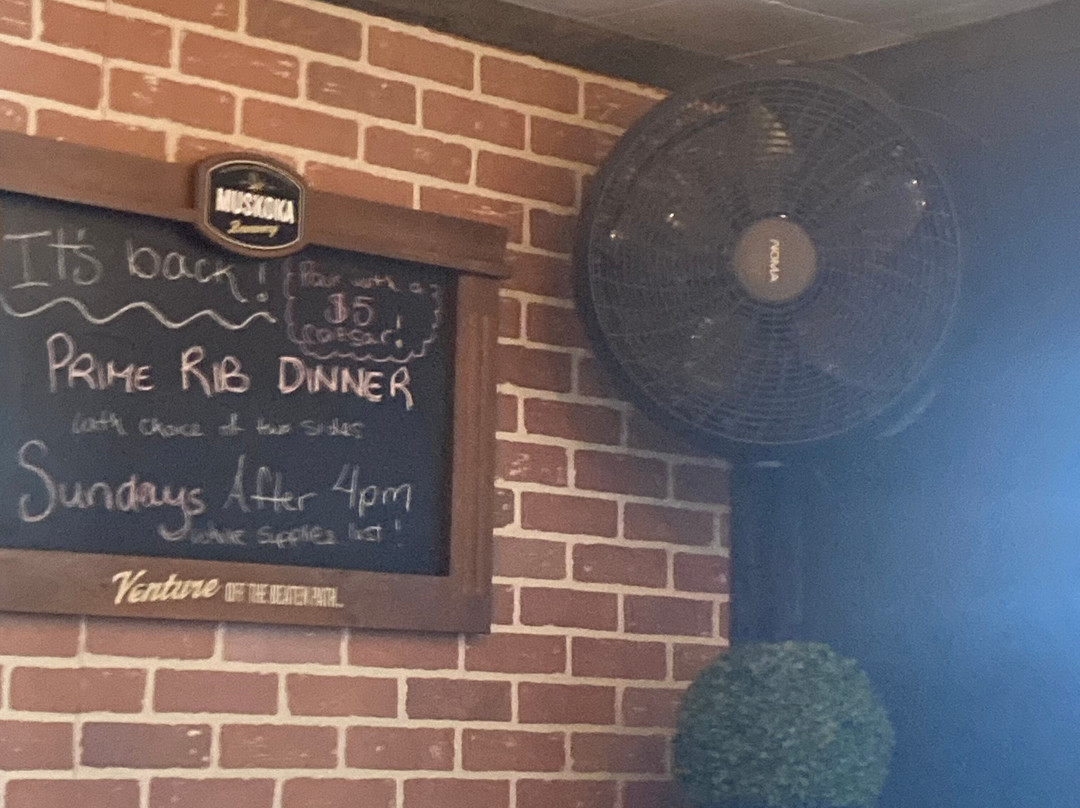 MUSKOKA
Brewery
It's back!
Pair with a
$5
caesar!
PRIME RIB DINNER
with choice of two sides
Sundays After 4pm
while supplies last!
Venture OFF THE BEATEN PATH...
NOMA